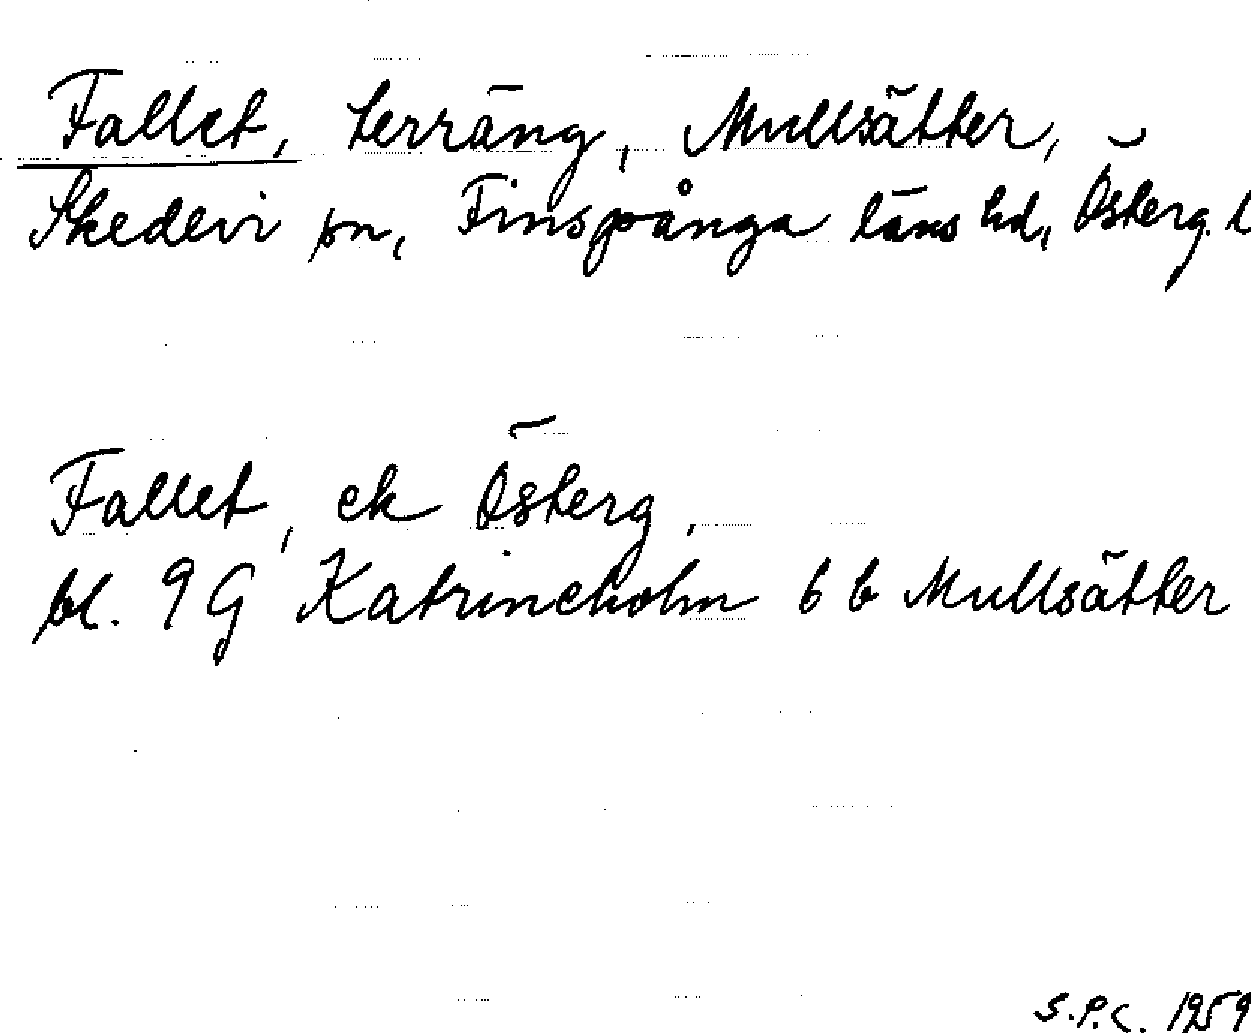 Fallet, terräng, Mullsätter,
Skedevi sn, Finspånga läns hd, Österg. l
Fallet, ek Österg,
bl. 9G Katrineholm 6 b Mullsätter
S.P.C. 1959